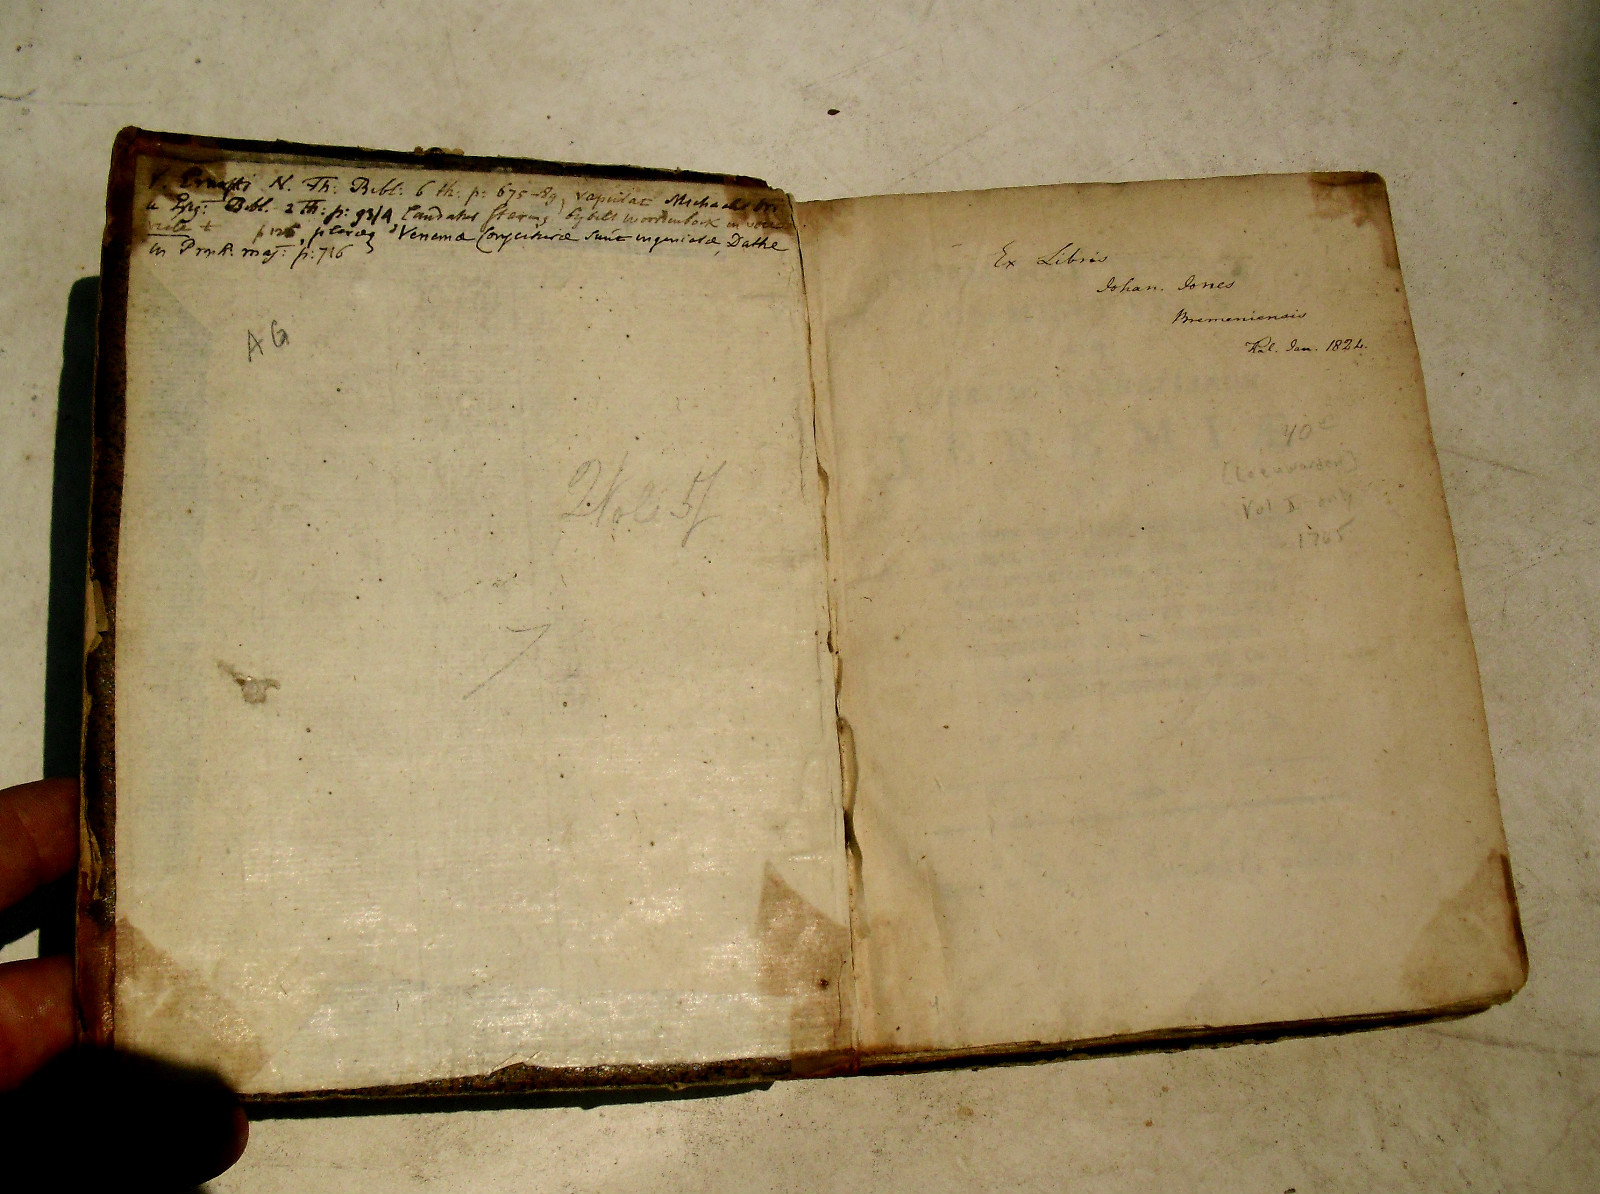 V. Ernesti N. Th: Bibl: 6 th: p: 675-89, vapulat Michaelis
Bibl. 2 Th: p: 93/4 laudatus bybels woordenboek in voce
p 126,
Venemæ Conjecturæ sunt ingeniosæ, Dathe
in Proph. maj: p: 716
AG
2 Vols 5/
7
Ex Libris
Johan. Jones
Bremeniensis
Kal. Jan. 1824.
40
(Leeuwarden)
Vol I only
1765